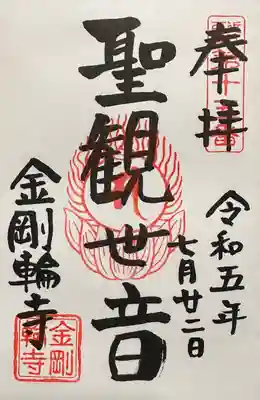 奉拝
令和五年
七月廿二日
聖観世音
金剛輪寺
金剛
輪寺